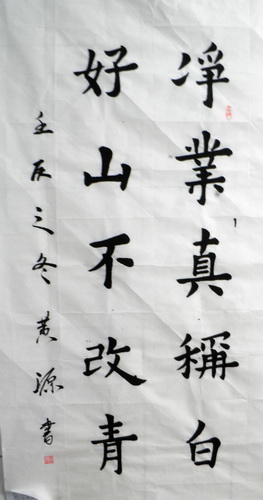 凈業真稱白
好山不改青
壬辰之冬黄源書